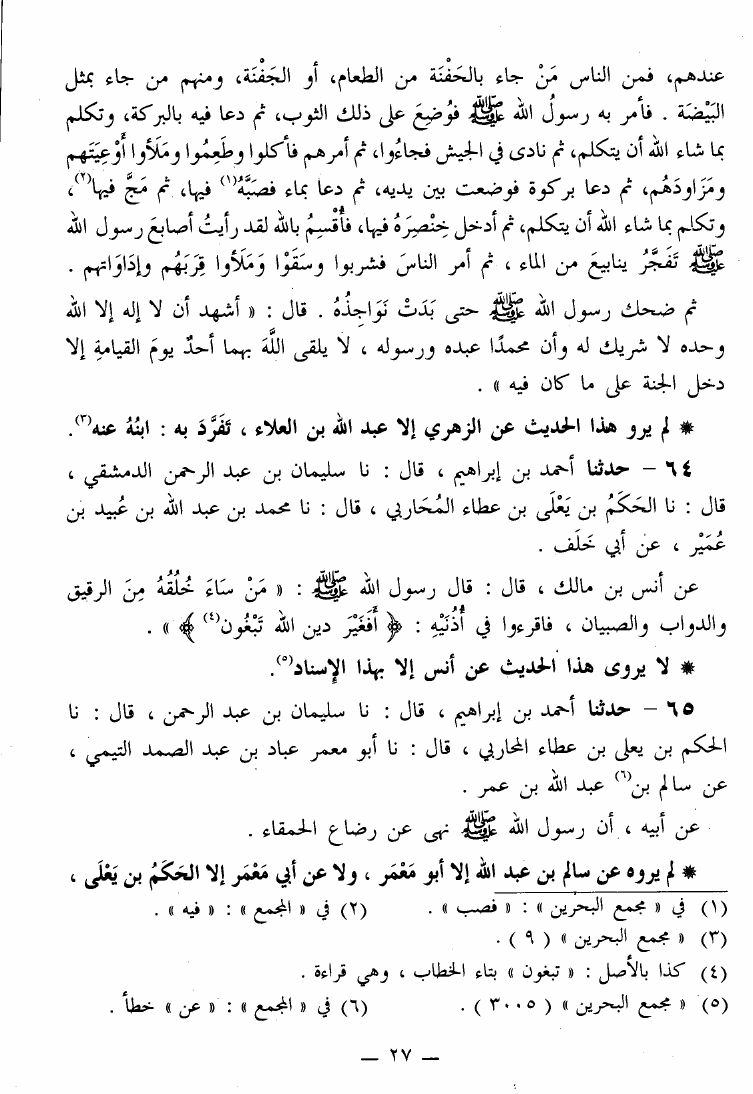 عندهم، فمن الناس مَنْ جاء بالحَفْنَة من الطعام، أو الجَفْنَة، ومنهم من جاء بمثل
البَيْضَة . فأمر به رسولُ الله ﷺ فوُضِعَ على ذلك الثوب، ثم دعا فيه بالبركة، وتكلم
بما شاء الله أن يتكلم، ثم نادى في الجيش فجاءُوا، ثم أمرهم فأكلوا وطَعِمُوا ومَلَأوا أَوْعِيَتَهم
ومَزَاودَهُم، ثم دعا بركوة فوضعت بين يديه، ثم دعا بماء فصَبَّهُ(١) فيها، ثم مَجَّ فيها(٢)،
وتكلم بما شاء الله أن يتكلم، ثم أدخل خِنْصِرَهُ فيها، فأُقْسِمُ بالله لقد رأيتُ أصابعَ رسول الله
ﷺ تَفَجَّرُ ينابيعَ من الماء ، ثم أمر الناسَ فشربوا وسَقَوْا وَمَلَأوا قِرَبَهُم وإدَاوَاتهم .
ثم ضحك رسول الله ﷺ حتى بَدَتْ نَوَاجِذُهُ . قال : « أشهد أن لا إله إلا الله
وحده لا شريك له وأن محمدًا عبده ورسوله ، لا يلقى اللَّهَ بهما أحدٌ يومَ القيامةِ إلا
دخل الجنة على ما كان فيه » .
* لم يرو هذا الحديث عن الزهري إلا عبد الله بن العلاء ، تَفَرَّدَ به : ابنُهُ عنه(٣).
٦٤ - حدثنا أحمد بن إبراهيم ، قال : نا سليمان بن عبد الرحمن الدمشقي ،
قال : نا الحَكَمُ بن يَعْلَى بن عطاء المُحَاربي ، قال : نا محمد بن عبد الله بن عُبيد بن
عُمَيْر ، عن أبي خَلَف .
عن أنس بن مالك ، قال : قال رسول الله ﷺ : « مَنْ سَاءَ خُلُقُهُ مِنَ الرقيق
والدواب والصبيان ، فاقرءوا في أُذُنَيْهِ : ﴿ أَفَغَيْرَ دين الله تَبْغُون(٤) ﴾ » .
* لا يروى هذا الحديث عن أنس إلا بهذا الإسناد(٥).
٦٥ - حدثنا أحمد بن إبراهيم ، قال : نا سليمان بن عبد الرحمن ، قال : نا
الحكم بن يعلى بن عطاء المحاربي ، قال : نا أبو معمر عباد بن عبد الصمد التيمي ،
عن سالم بن(٦) عبد الله بن عمر .
عن أبيه ، أن رسول الله ﷺ نهى عن رضاع الحمقاء .
* لم يروه عن سالم بن عبد الله إلا أبو مَعْمَر ، ولا عن أبي مَعْمَر إلا الحَكَمُ بن يَعْلَى ،
(١) في « مجمع البحرين » : « فصب » . (٢) في « المجمع » : « فيه » .
(٣) « مجمع البحرين » ( ٩ ) .
(٤) كذا بالأصل : « تبغون » بتاء الخطاب ، وهي قراءة .
(٥) « مجمع البحرين » ( ٣٠٠٥ ) . (٦) في « المجمع » : « عن » خطأ .
— ٢٧ —